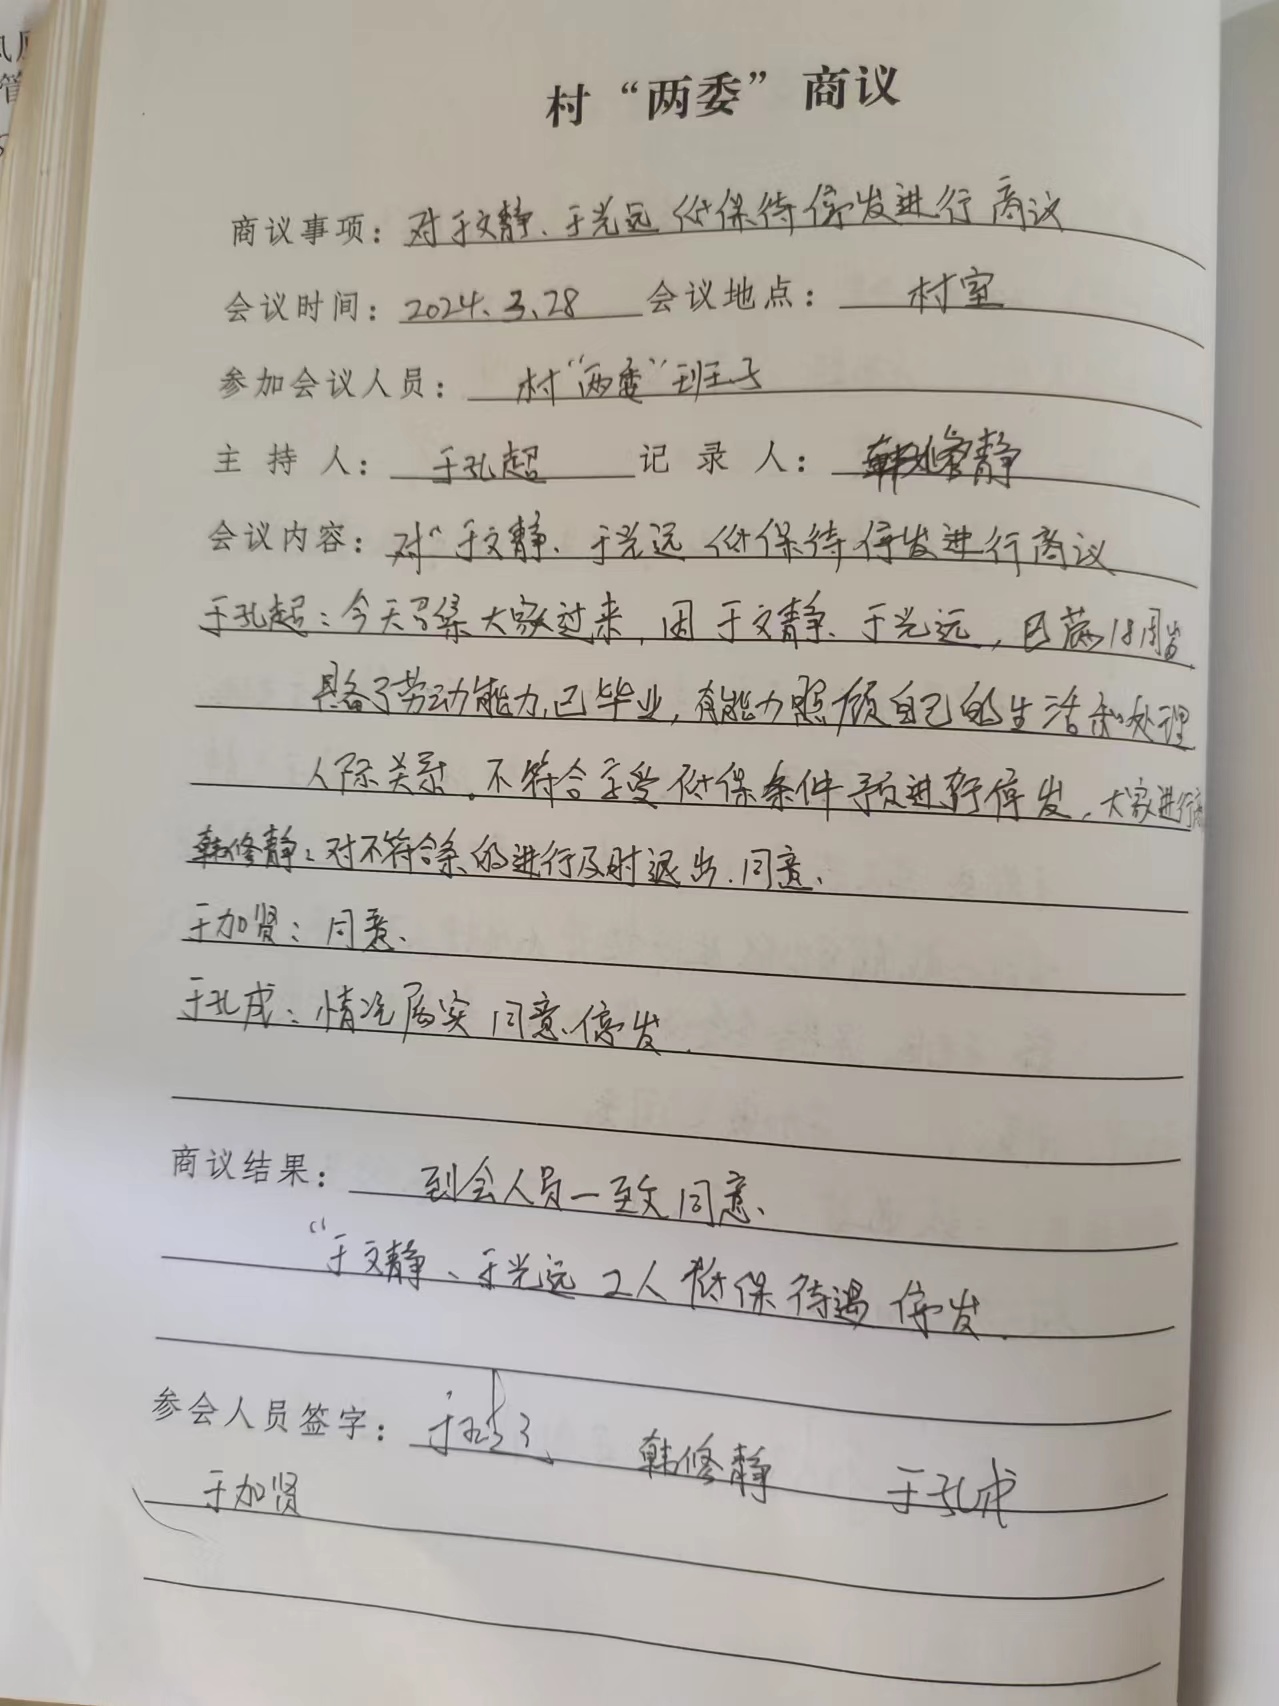 村“两委”商议
商议事项：对于文静、于光远低保待停发进行商议
会议时间：2024.3.28 会议地点：村室
参加会议人员：村“两委”班子
主持人：于孔超 记录人：韩修静
会议内容：对“于文静、于光远低保待停发进行商议
于孔超：今天召集大家过来，因于文静、于光远，已满18周岁
具备了劳动能力，已毕业，有能力照顾自己的生活和处理
人际关系。不符合享受低保条件予进行停发，大家进行商
韩修静：对不符合条的进行及时退出．同意、
于加贤：同意、
于孔成：情况属实 同意、停发．
商议结果：到会人员一致同意、
“于文静、于光远2人低保待遇停发．
参会人员签字： 韩修静 于孔成
于加贤